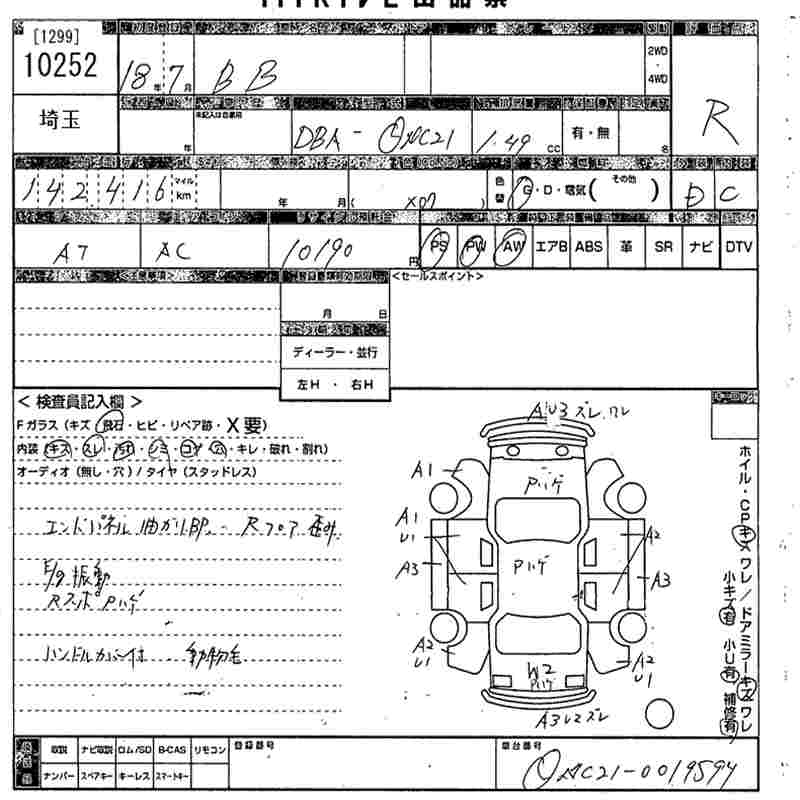 [1299]
10252
18年 7月 BB
2WD
・
4WD
R
埼玉
年
未記入は自家用
DBA-QNC21
1.49 cc
有・無
名
142416 マイル km
年 月( )
色替
G・D・電気( その他 )
D C
AT AC 10190 円
PS PW AW エアB ABS 革 SR ナビ DTV
<セールスポイント>
月 日
ディーラー・並行
左H・右H
<検査員記入欄>
Fガラス(キズ・飛石・ヒビ・リペア跡・X要)
内装(キズ・スレ・汚れ・シミ・コゲ・穴・キレ・破れ・割れ)
オーディオ(無し・穴)/タイヤ(スタッドレス)
エンドパネル曲がりBP - Rフロア歪み
E/g 振動
Rスッポ Pハゲ
ハンドルカバー付 動物毛
AU3ズレ、ワレ
Pハゲ
A1
A1
U1
A2
A3
Pハゲ
A3
A2
U1
W2
Pハゲ
A2
U1
A3レスズレ
ホイル・CPキズワレ/ドアミラーキズワレ
小キズ有 小U有 補修有
取説 ナビ取説 ロム/SD B-CAS リモコン
ナンバー スペアキー キーレス スマートキー
登録番号
車台番号
QNC21-0019594